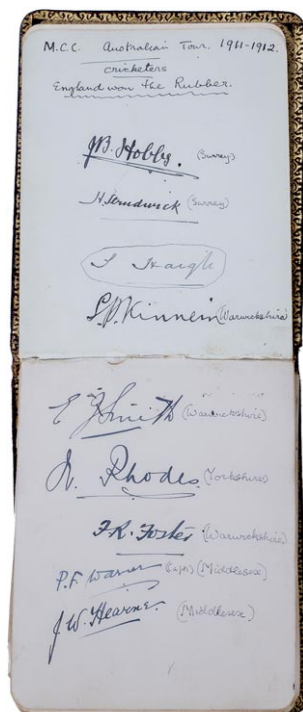 M.C.C. Australian Tour. 1911-1912.
cricketers
England won the Rubber.
J.B. Hobbs. (Surrey)
H. Strudwick (Surrey)
S Haigh
S.P. Kinneir (Warwickshire)
E J Smith (Warwickshire)
W. Rhodes (Yorkshire)
F.R. Foster (Warwickshire)
P.F. Warner (Capt) (Middlesex)
J.W. Hearne. (Middlesex)